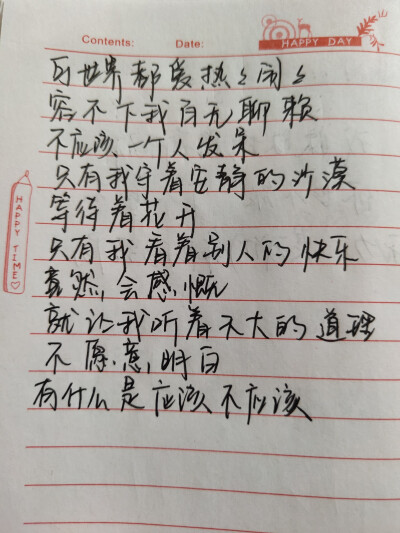 Contents:
Date:
HAPPY DAY
可世界都爱热々闹々
容不下我百无聊赖
不应该一个人发呆
只有我守着安静的沙漠
等待着花开
只有我看着别人的快乐
竟然会感慨
就让我听着天大的道理
不愿意明白
有什么是应该不应该
HAPPY TIME